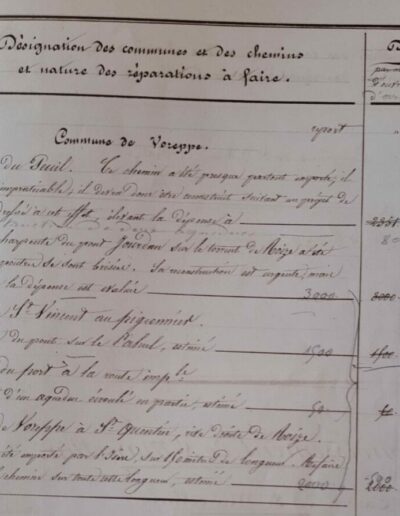 Désignation des communes et des chemins
et nature des réparations à faire.
report
Commune de Voreppe.
du Ce chemin a été presque partout emporté; il
impraticable; il devra donc être reconstruit suivant un projet de
à cet effet, élevant la dépense à 2251
80
charpente du pont Jourdan sur le torrent de Roize a été
poutres se sont brisées. Sa reconstruction est urgente;
la dépense est évaluée 3000 3000
St Vincent au piquonnier.
du pont sur le estimé 1500 1500
du port à la route imple
d'un aqueduc écroulé en partie, estimé 50
de Voreppe à St Quentin, rive droite de Roize.
été emporté par l'Isère, sur 150 mètres de longueur. Refaire
chemin sur toute cette longueur, estimé 2000 2000
500